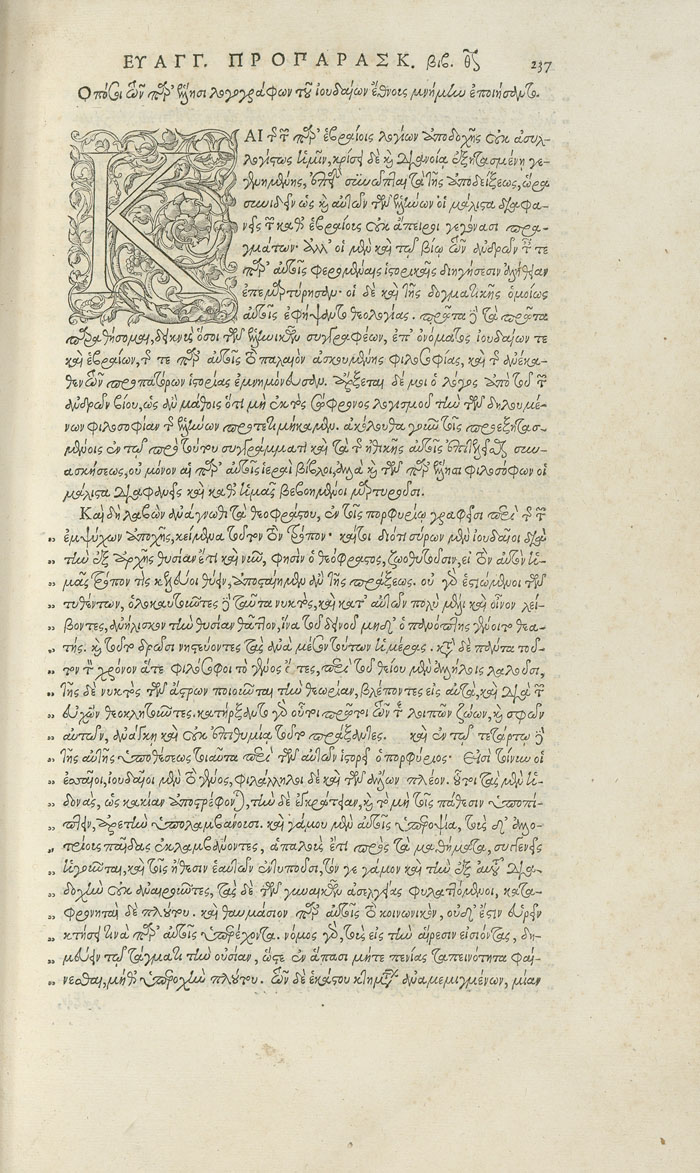 ΕΥΑΓΓ. ΠΡΟΠΑΡΑΣΚ. βιβ. θον 237
Οπόσοι τῶν παρ' ἕλλησι λογογράφων τοῦ ἰουδαίων ἔθνους μνήμην ἐποιήσαντο.
ΚΑΙ τῆς τῶν παρ' ἑβραίοις λογίων ἀποδοχῆς οὐκ ἀσυλ-
λογίστως ἡμῖν, κρίσει δὲ καὶ διανοίᾳ ἐξητασμένῃ γε-
γενημένης, ἐπεὶ συνῶπται τὰ τῆς ἀποδείξεως, ὥρα
συνιδεῖν ὡς καὶ αὐτῶν τῶν ἑλλήνων οἱ μάλιστα διαφα-
νεῖς τῶν καθ' ἑβραίους οὐκ ἄπειροι γεγόνασι πραγ-
μάτων· ἀλλ' οἱ μὲν καὶ τῷ βίῳ τῶν ἀνδρῶν ταῖς τε
παρ' αὐτοῖς φερομέναις ἱστορικαῖς διηγήσεσιν ἀλήθειαν
ἐπεμαρτύρησαν· οἱ δὲ καὶ τῆς δογματικῆς ὁμοίως
αὐτοῖς ἐφήψαντο θεολογίας. πρῶτα δὴ τὰ πρῶτα
παραθήσομαι, δεικνὺς ὅσοι τῶν ἑλληνικῶν συγγραφέων, ἐπ' ὀνόματος ἰουδαίων τε
καὶ ἑβραίων, τῆς τε παρ' αὐτοῖς τὸ παλαιὸν ἀσκουμένης φιλοσοφίας, καὶ τῆς ἀνέκα-
θεν τῶν προπατόρων ἱστορίας ἐμνημόνευσαν. ἄρξεται δέ μοι ὁ λόγος ἀπὸ τοῦ τῶν
ἀνδρῶν βίου, ὡς ἂν μάθοις ὅτι μὴ ἐκτὸς σώφρονος λογισμοῦ τὴν τῶν δηλουμέ-
νων φιλοσοφίαν τῆς ἑλλήνων προτετιμήκαμεν. ἀκόλουθα γοῦν τοῖς προεξητασ-
μένοις ἐν τῷ πρὸ τούτου συγγράμματι κατὰ τὰ τῆς ἠθικῆς αὐτοῖς ἐπιτηδεύσεως συν-
ασκήσεως, οὐ μόνον αἱ παρ' αὐτοῖς ἱεραὶ βίβλοι, ἀλλὰ καὶ τῶν παρ' ἕλλησι φιλοσόφων οἱ
μάλιστα διαφανεῖς καὶ καθ' ἡμᾶς βεβοημένοι μαρτυροῦσι.
Καὶ δὴ λαβὼν ἀνάγνωθι τὰ θεοφράστου, ἐν τοῖς πορφυρίῳ γραφεῖσι περὶ τῆς τῶν
ἐμψύχων ἀποχῆς, κείμενα τοῦτον τὸν τρόπον· καίτοι διότι σύρων μὲν ἰουδαῖοι διὰ
τὴν ἐξ ἀρχῆς θυσίαν ἔτι καὶ νῦν, φησὶν ὁ θεόφραστος, ζωοθυτοῦσιν, εἰ τὸν αὐτὸν ἡ-
μᾶς τρόπον τις κελεύοι θύειν, ἀποσταίημεν ἂν τῆς πράξεως. οὐ γὰρ ἑστιώμενοι τῶν
τυθέντων, ὁλοκαυτοῦντες δὲ ταῦτα νυκτός, καὶ κατ' αὐτῶν πολὺ μέλι καὶ οἶνον λεί-
βοντες, ἀνήλισκον τὴν θυσίαν θᾶττον, ἵνα τοῦ δεινοῦ μηδ' ὁ πανόπτης γένοιτο θεα-
τής. καὶ τοῦτο δρῶσι νηστεύοντες τὰς ἀνὰ μέσον τούτων ἡμέρας. κατὰ δὲ πάντα τοῦ-
τον τὸν χρόνον ἅτε φιλόσοφοι τὸ γένος ὄντες, περὶ τοῦ θείου μὲν ἀλλήλοις λαλοῦσι,
τῆς δὲ νυκτὸς τῶν ἄστρων ποιοῦνται τὴν θεωρίαν, βλέποντες εἰς αὐτά, καὶ διὰ τῶν
εὐχῶν θεοκλυτοῦντες. κατήρξαντο γὰρ οὗτοι πρῶτοι τῶν τε λοιπῶν ζώων, καὶ σφῶν
αὐτῶν, ἀνάγκῃ καὶ οὐκ ἐπιθυμίᾳ τοῦτο πράξαντες. καὶ ἐν τῷ τετάρτῳ δὲ
τῆς αὐτῆς ὑποθέσεως τοιαῦτα περὶ τῶν αὐτῶν ἱστορεῖ ὁ πορφύριος· Εἰσὶ τοίνυν οἱ
ἐσσαῖοι, ἰουδαῖοι μὲν τὸ γένος, φιλάλληλοι δὲ καὶ τῶν ἄλλων πλέον. οὗτοι τὰς μὲν ἡ-
δονάς, ὡς κακίαν ἀποστρέφονται, τὴν δὲ ἐγκράτειαν, καὶ τὸ μὴ τοῖς πάθεσιν ὑποπί-
πτειν, ἀρετὴν ὑπολαμβάνουσι. καὶ γάμου μὲν αὐτοῖς ὑπεροψία, τοὺς δ' ἀλλο-
τρίους παῖδας ἐκλαμβάνοντες, ἁπαλοὺς ἔτι πρὸς τὰ μαθήματα, συγγενεῖς
ἡγοῦνται, καὶ τοῖς ἤθεσιν ἑαυτῶν ἐντυποῦσι, τὸν γε γάμον καὶ τὴν ἐξ αὐτοῦ δια-
δοχὴν οὐκ ἀναιροῦντες, τὰς δὲ τῶν γυναικῶν ἀσελγείας φυλαττόμενοι, κατα-
φρονηταὶ δὲ πλούτου. καὶ θαυμάσιον παρ' αὐτοῖς τὸ κοινωνικόν, οὐδ' ἔστιν εὑρεῖν
κτήσει τινὰ παρ' αὐτοῖς ὑπερέχοντα. νόμος γάρ, τοὺς εἰς τὴν αἵρεσιν εἰσιόντας, δη-
μεύειν τῷ τάγματι τὴν οὐσίαν, ὥστε ἐν ἅπασι μήτε πενίας ταπεινότητα φαί-
νεσθαι, μήθ' ὑπεροχὴν πλούτου. τῶν δὲ ἑκάστου κτημάτων ἀναμεμιγμένων, μίαν